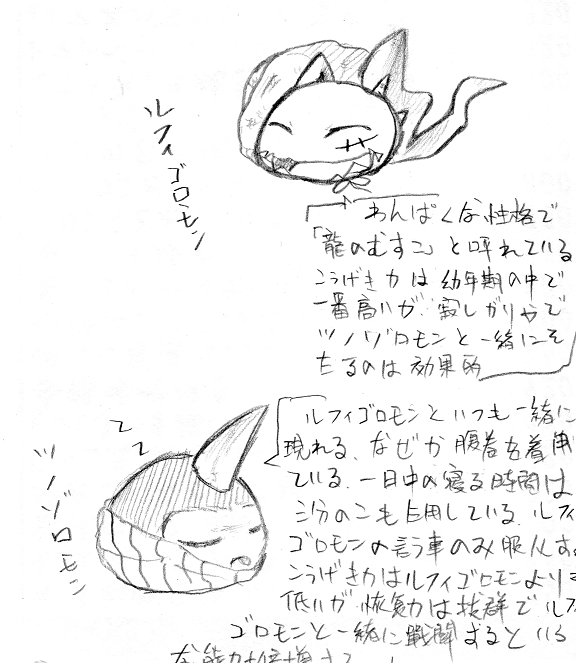 ルフィゴロモン
わんぱくな性格で
「龍のむすこ」と呼れている
こうげき力は幼年期の中で
一番高いが、寂しがりやで
ツノゾロモンと一緒にそ
だるのは効果的
ルフィゴロモンといつも一緒に
現れる、なぜか腹巻を着用
ている、一日中の寝る時間は
三分の二も占用している、ルフィ
ゴロモンの言う事のみ服从す
こうげき力はルフィゴロモンより
低いが、恢复力は抜群でルフ
ゴロモンと一緒に戦闘するといろ
な能力が倍増する
ツノゾロモン
zz